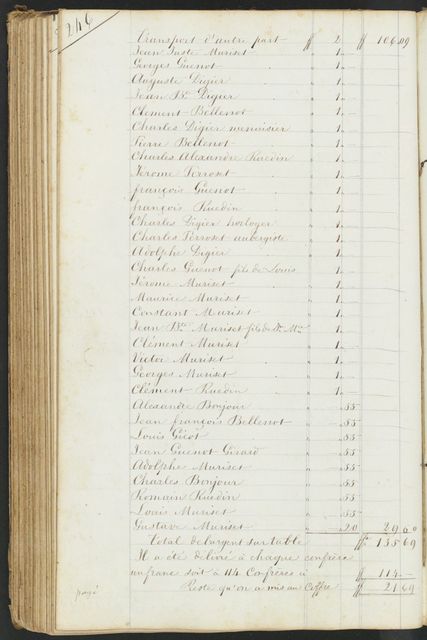 246
Transport d'autre part ff 2 ff 106,09
Jean Juste Muriset " 1.-
Georges Guenot " 1.-
Auguste Digier " 1.-
Jean Bte Digier " 1.-
Clement Bellenot " 1.-
Charles Digier menuisier " 1.-
Pierre Bellenot " 1.-
Charles Alexandre Ruedin " 1.-
Jerome Perroset " 1.-
françois Guenot " 1.-
françois Ruedin " 1.-
Charles Digier horloger " 1.-
Charles Perroset aubergiste " 1.-
Adolphe Digier " 1.-
Charles Guenot fils de Louis " 1.-
Jérome Muriset " 1.-
Maurice Muriset " 1.-
Constant Muriset " 1.-
Jean Bte Muriset fils de " 1.-
Clément Muriset " 1.-
Victor Muriset " 1.-
Georges Muriset " 1.-
Clément Ruedin " 1.-
Alexandre Bonjour " -.55
Jean françois Bellenot " -.55
Louis Gicot " -.55
Jean Guenot Girard " -.55
Adolphe Muriset " -.55
Charles Bonjour " -.55
Romain Ruedin " -.55
Louis Muriset " -.55
Gustave Muriset " -.20 29,60
Total de l'argent sur table ff 135,69
Il a été delivré à chaque confrère
un franc soit à 114 Confrères ci ff 114.-
payé Reste qu'on a mis au Coffre ff 21,69